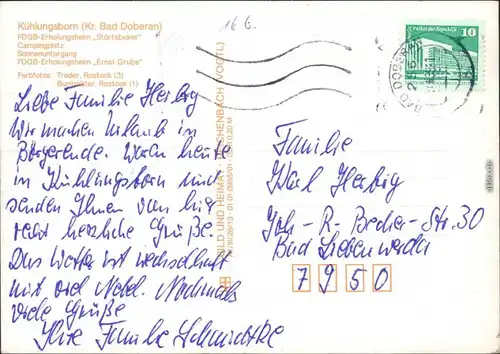 Kühlungsborn (Kr. Bad Doberan)
FDGB-Erholungsheim „Störtebeker"
Campingplatz
Sonnenuntergang
FDGB-Erholungsheim „Ernst Grube"
Farbfotos: Treder, Rostock (3)
Burmeister, Rostock (1)
16 6.
Palast der Republik
10
DDR
BAD DOBERAN
BILD UND HEIMAT REICHENBACH (VOGTL)
Liebe Familie Herbig
Wir machen Urlaub in
Börgerende. Waren heute
in Kühlungsborn und
senden Ihnen von hier
recht herzliche Grüße.
Das Wetter ist wechselhaft
mit viel Nebel. Nochmals
viele Grüße
Ihre Familie Schmidtke
Familie
Karl Herbig
Joh-R-Becher-Str. 30
Bad Liebenwerda
7950